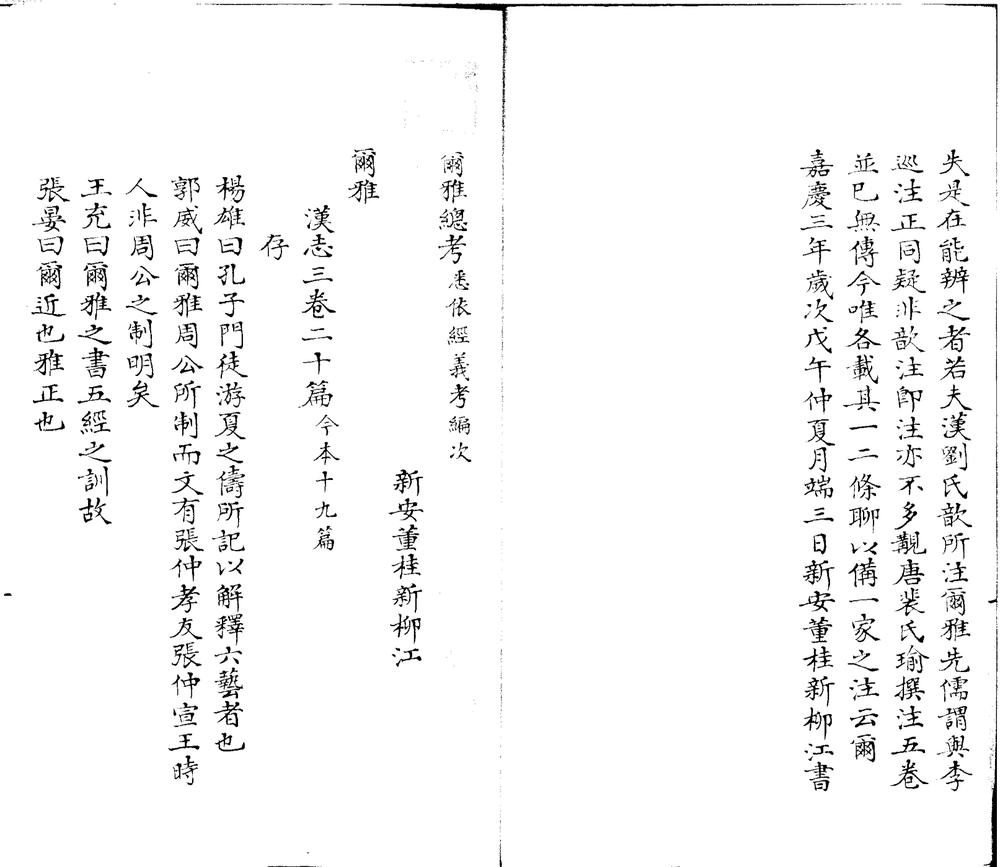 失是在能辨之者若夫漢劉氏歆所注爾雅先儒謂與李
巡注正同疑非歆注卽注亦不多觏唐裴氏瑜撰注五卷
並已無傳今唯各載其一二條聊以備一家之注云爾
嘉慶三年歲次戊午仲夏月端三日新安董桂新柳江書
爾雅總考悉依經義考編次
新安董桂新柳江
爾雅
漢志三卷二十篇今本十九篇
存
楊雄曰孔子門徒游夏之儔所記以解釋六藝者也
郭威曰爾雅周公所制而文有張仲孝友張仲宣王時
人非周公之制明矣
王充曰爾雅之書五經之訓故
張晏曰爾近也雅正也